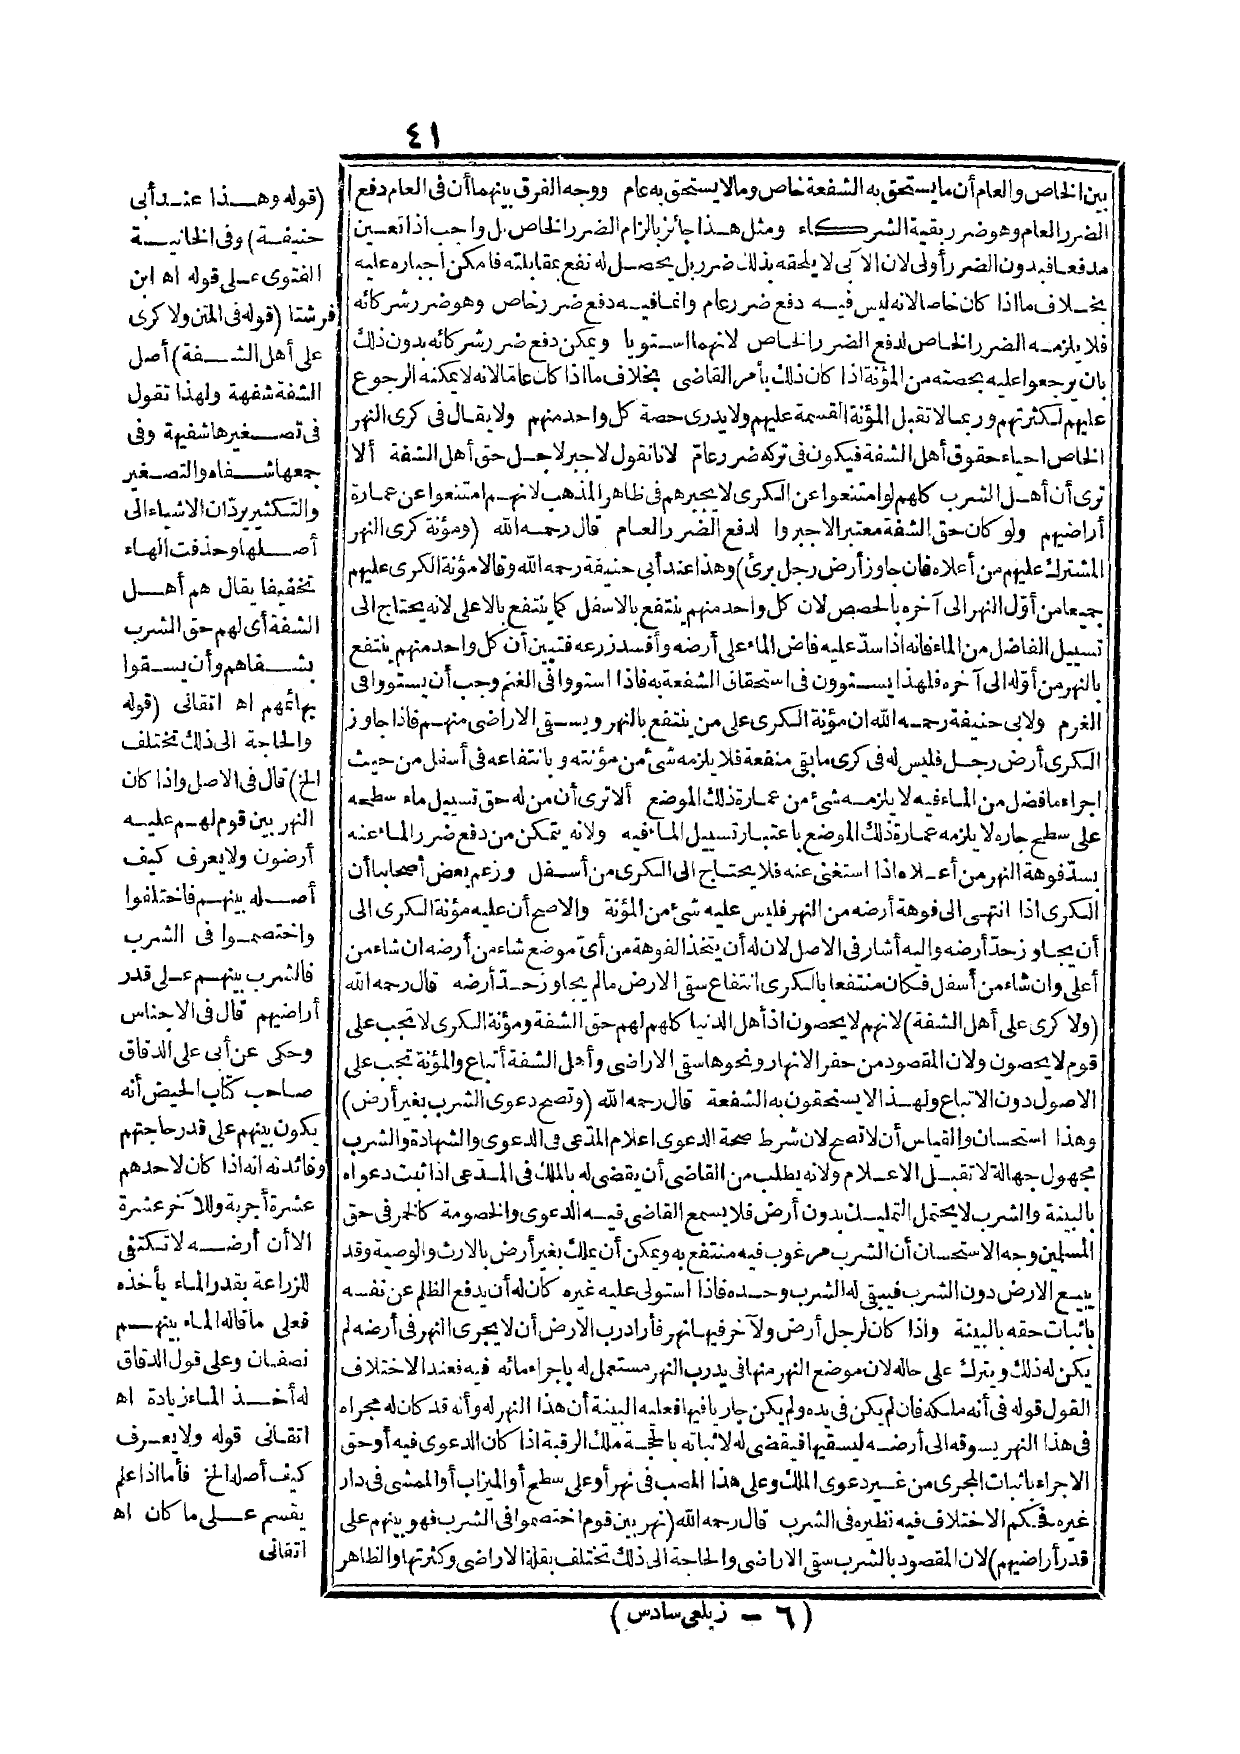 ٤١
بين الخاص والعام أن ما يستحق به الشفعة خاص وما لا يستحق به عام ووجه الفرق بينهما أن فى العام دفع
الضرر العام وهو ضرر بقية الشركاء ومثل هذا جائز بالزام الضرر الخاص بل واجب اذا تعين
مدفعا فبدون الضرر أولى لان الآبى لا يلحقه بذلك ضرر بل يحصل له نفع بمقابلته فامكن اجباره عليه
بخلاف ما اذا كان خاصا لانه ليس فيه دفع ضرر عام وانما فيه دفع ضرر خاص وهو ضرر شركائه
فلا يلزمه الضرر الخاص لدفع الضرر الخاص لانهما استويا ويمكن دفع ضرر شركائه بدون ذلك
بان يرجعوا عليه بحصته من المؤنة اذا كان ذلك بأمر القاضى بخلاف ما اذا كان عاما لانه لا يمكنه الرجوع
عليهم لكثرتهم وربما لا تقبل المؤنة القسمة عليهم ولا يدرى حصة كل واحد منهم ولا يقال فى كرى النهر
الخاص احياء حقوق أهل الشفة فيكون فى تركه ضرر عام لانا نقول لا جبر لاجل حق أهل الشفة ألا
ترى أن أهل الشرب كلهم لو امتنعوا عن الكرى لا يجبرهم فى ظاهر المذهب لانهم امتنعوا عن عمارة
أراضيهم ولو كان حق الشفة معتبرا لاجبروا لدفع الضرر العام قال رحمه الله (ومؤنة كرى النهر
المشترك عليهم من أعلاه فان جاوز أرض رجل برئ) وهذا عند أبى حنيفة رحمه الله وقالا مؤنة الكرى عليهم
جميعا من أول النهر الى آخره بالحصص لان كل واحد منهم ينتفع بالاسفل كما ينتفع بالاعلى لانه يحتاج الى
تسييل الفاضل من الماء فانه اذا سد عليه فاض الماء على أرضه وأفسد زرعه فتبين أن كل واحد منهم ينتفع
بالنهر من أوله الى آخره فلهذا يستوون فى استحقاق الشفعة به فاذا استووا فى الغنم وجب أن يستووا فى
الغرم ولابى حنيفة رحمه الله ان مؤنة الكرى على من ينتفع بالنهر ويسقى الاراضى منهم فاذا جاوز
الكرى أرض رجل فليس له فى كرى ما بقى منفعة فلا يلزمه شئ من مؤنته وبانتفاعه فى أسفل من حيث
اجراء ما فضل من الماء فيه لا يلزمه شئ من عمارة ذلك الموضع ألا ترى أن من له حق تسييل ماء سطحه
على سطح جاره لا يلزمه عمارة ذلك الموضع باعتبار تسييل الماء فيه ولانه يتمكن من دفع ضرر الماء عنه
بسد فوهة النهر من أعلاه اذا استغنى عنه فلا يحتاج الى الكرى من أسفل وزعم بعض أصحابنا أن
الكرى اذا انتهى الى فوهة أرضه من النهر فليس عليه شئ من المؤنة والاصح أن عليه مؤنة الكرى الى
أن يجاوز حد أرضه واليه أشار فى الاصل لان له أن يتخذ الفوهة من أى موضع شاء من أرضه ان شاء من
أعلى وان شاء من أسفل فكان منتفعا بالكرى انتفاع سقى الارض ما لم يجاوز حد أرضه قال رحمه الله
(ولا كرى على أهل الشفة) لانهم لا يحصون اذ أهل الدنيا كلهم لهم حق الشفة ومؤنة الكرى لا تجب على
قوم لا يحصون ولان المقصود من حفر الانهار ونحوها سقى الاراضى وأهل الشفة أتباع والمؤنة تجب على
الاصول دون الاتباع ولهذا لا يستحقون به الشفعة قال رحمه الله (وتصح دعوى الشرب بغير أرض)
وهذا استحسان والقياس أن لا تصح لان شرط صحة الدعوى اعلام المدعى فى الدعوى والشهادة والشرب
مجهول جهالة لا تقبل الاعلام ولانه يطلب من القاضى أن يقضى له بالملك فى المدعى اذا ثبت دعواه
بالبينة والشرب لا يحتمل التمليك بدون أرض فلا يسمع القاضى فيه الدعوى والخصومة كالخمر فى حق
المسلمين وجه الاستحسان أن الشرب مرغوب فيه منتفع به ويمكن أن يملك بغير أرض بالارث والوصية وقد
يبيع الارض دون الشرب فيبقى له الشرب وحده فاذا استولى عليه غيره كان له أن يدفع الظلم عن نفسه
باثبات حقه بالبينة واذا كان لرجل أرض ولآخر فيها نهر فأراد رب الارض أن لا يجرى النهر فى أرضه لم
يكن له ذلك ويترك على حاله لان موضع النهر منها فى يد رب النهر مستعمل له باجراء مائه فيه فعند الاختلاف
القول قوله فى أنه ملكه فان لم يكن فى يده ولم يكن جاريا فيها فعليه البينة أن هذا النهر له وأنه قد كان له مجراه
فى هذا النهر يسوقه الى أرضه ليسقيها فيقضى له لاثباته بالحجة ملك الرقبة اذا كان الدعوى فيه أو حق
الاجراء باثبات المجرى من غير دعوى الملك وعلى هذا المصب فى نهر أو على سطح أو الميزاب أو الممشى فى دار
غيره فحكم الاختلاف فيه نظيره فى الشرب قال رحمه الله (نهر بين قوم اختصموا فى الشرب فهو بينهم على
قدر أراضيهم) لان المقصود بالشرب سقى الاراضى والحاجة الى ذلك تختلف بقلة الاراضى وكثرتها والظاهر
(قوله وهذا عند أبى
حنيفة) وفى الخانية
الفتوى على قوله اه ابن
فرشتا (قوله فى المتن ولا كرى
على أهل الشفة) أصل
الشفة شفهة ولهذا تقول
فى تصغيرها شفيهة وفى
جمعها شفاه والتصغير
والتكثير يردان الاشياء الى
أصلها وحذفت الهاء
تخفيفا يقال هم أهل
الشفة أى لهم حق الشرب
بشفاههم وأن يسقوا
بهائمهم اه اتقانى (قوله
والحاجة الى ذلك تختلف
الخ) قال فى الاصل واذا كان
النهر بين قوم لهم عليه
أرضون ولا يعرف كيف
أصله بينهم فاختلفوا
واختصموا فى الشرب
فالشرب بينهم على قدر
أراضيهم قال فى الاجناس
وحكى عن أبى على الدقاق
صاحب كتاب الحيض أنه
يكون بينهم على قدر حاجتهم
وفائدته أنه اذا كان لاحدهم
عشرة أجربة وللآخر عشرة
الا أن أرضه لا تكتفى
للزراعة بقدر الماء يأخذه
فعلى ما قاله الماء بينهم
نصفان وعلى قول الدقاق
له أخذ الماء زيادة اه
اتقانى قوله ولا يعرف
كيف أصله الخ فأما اذا علم
يقسم على ما كان اه
اتقانى
(٦ - زيلعى سادس)